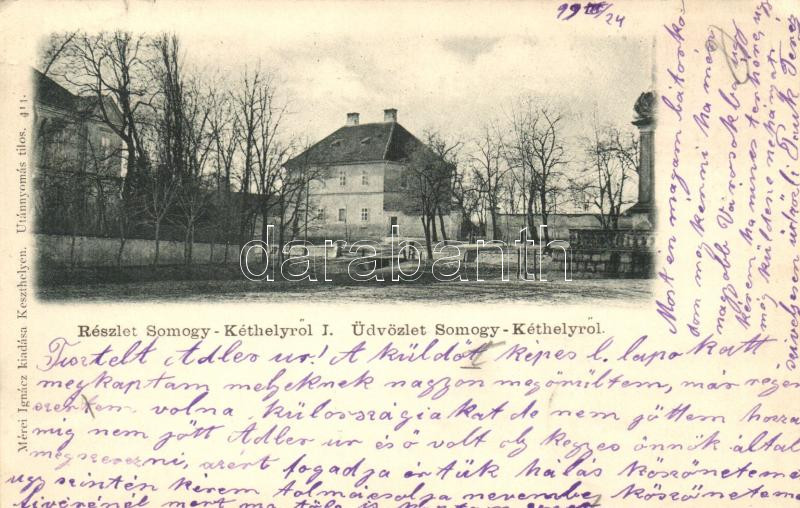 99 III/24
Mérei Ignácz kiadása Keszthelyen. Utánnyomás tilos. 411.
databanth
Részlet Somogy-Kéthelyről I. Üdvözlet Somogy-Kéthelyről.
Tisztelt Adler ur! A küldött képes l. lapokatt
megkaptam melyeknek nagyon megörültem, már régen
szertem volna, külországiakat de nem jöttem hozzá
mig nem jött Adler ur és ő volt oly kegyes önnök által
megszerezni, azért fogadja értük hálás köszönetemet
ugy szintén kérem tolmácsolja nevembe köszönetemet
Most en magam bátorko-
dom meg kérni ha még
nagyobb Városokba ugy
kérem ha nincs terhére ugy
még küldene néhányat
szivélyesen üdvözli